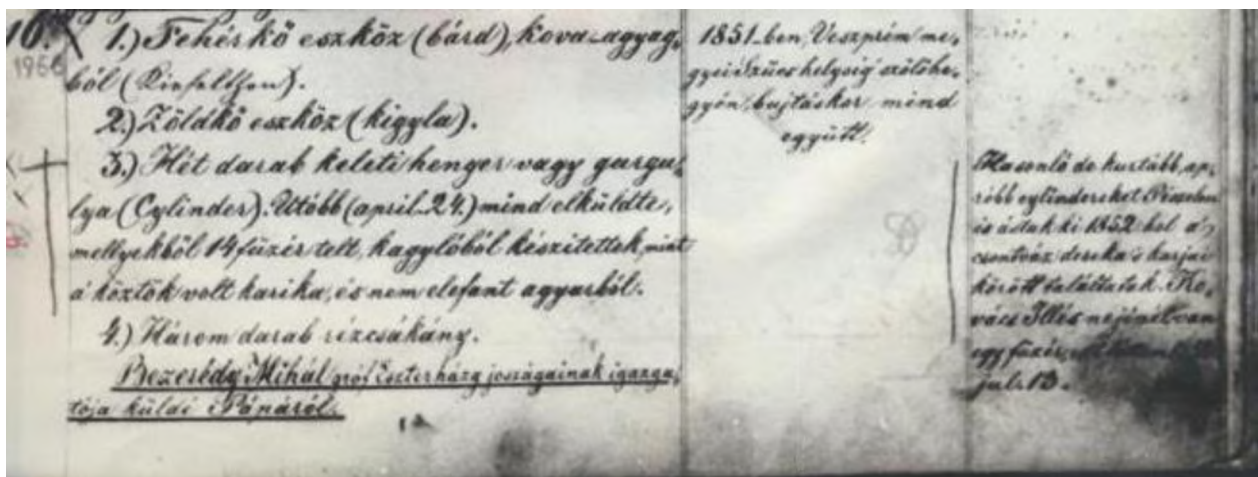 10.
1966
1.) Fehér kő eszköz (bárd), kova-agyag,
ból (Kiefelthon).
2.) Zöldkő eszköz (kigyla).
3.) Hét darab keleti henger vagy gurgu,
lya (Cylinder). Utóbb (april. 24.) mind elküldte,
mellyekből 14 füzér telt, kagylóból készitettek, mint
a' köztök volt karika, és nem elefant agyarból.
4.) Három darab rézcsákány.
Bezerédy Mihál gróf Eszterházy joszágainak igazga,
tója küldi Pápáról.
1851-ben, Veszprém me,
gyei Szücs helység szőlőhe,
gyén, bujtáskor mind
együtt.
Hasonló de kurtább, ap,
róbb cylindereket
is ástak ki 1852 hol a'
csontváz dereka 's karjai
körött találtattak. Ko,
vács Illés nejinél van
egy füzér,
jul. 13.